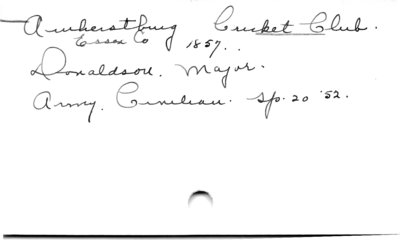 Amherstburg Cricket Club.
Essex Co 1857.
Donaldson. Major.
Army, Civilian. Sp. 20 '52.